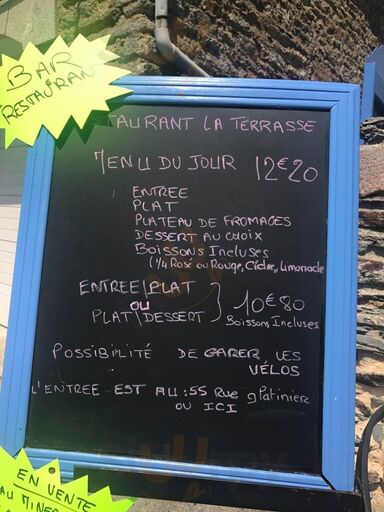 BAR
RESTAURANT
TAURANT LA TERRASSE
MENU DU JOUR 12€20
ENTREE
PLAT
PLATEAU DE FROMAGES
DESSERT AU CHOIX
BOISSONS INCLUSES
(1/4 Rosé ou Rouge, Cidre, Limonade
ENTREE/PLAT
OU
PLAT/DESSERT
10€80
Boissons Incluses
POSSIBILITÉ DE GARER LES
VÉLOS
L'ENTREE EST AU : 55 Rue g Patiniere
OU ICI
EN VENTE
AU MINE